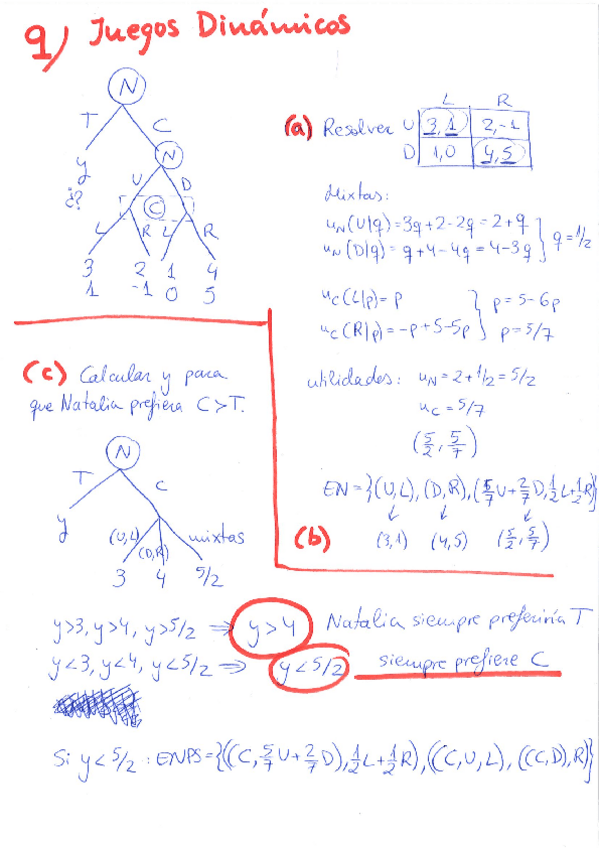 9) Juegos Dinámicos
N
T C
N
y
¿?
U D
C
L R L R
3 2 1 4
1 -1 0 5
(a) Resolver
L R
U 3,1 2,-1
D 1,0 4,5
Mixtas:
u_N(U|q) = 3q+2-2q = 2+q
u_N(D|q) = q+4-4q = 4-3q } q=1/2
u_C(L|p) = p } p = 5-6p
u_C(R|p) = -p+5-5p } p = 5/7
utilidades: u_N = 2+1/2 = 5/2
u_C = 5/7
(5/2, 5/7)
EN = {(U,L), (D,R), (5/7U+2/7D, 1/2L+1/2R)}
(b) (3,1) (4,5) (5/2, 5/7)
(c) Calcular y para
que Natalia prefiera C>T.
N
T C
y
(U,L) (D,R) mixtas
3 4 5/2
y>3, y>4, y>5/2 ⇒ y>4 Natalia siempre preferiría T
y<3, y<4, y<5/2 ⇒ y<5/2 siempre prefiere C
Si y<5/2 : ENPS = {((C, 5/7U+2/7D), 1/2L+1/2R), ((C,U,L), ((C,D),R)}